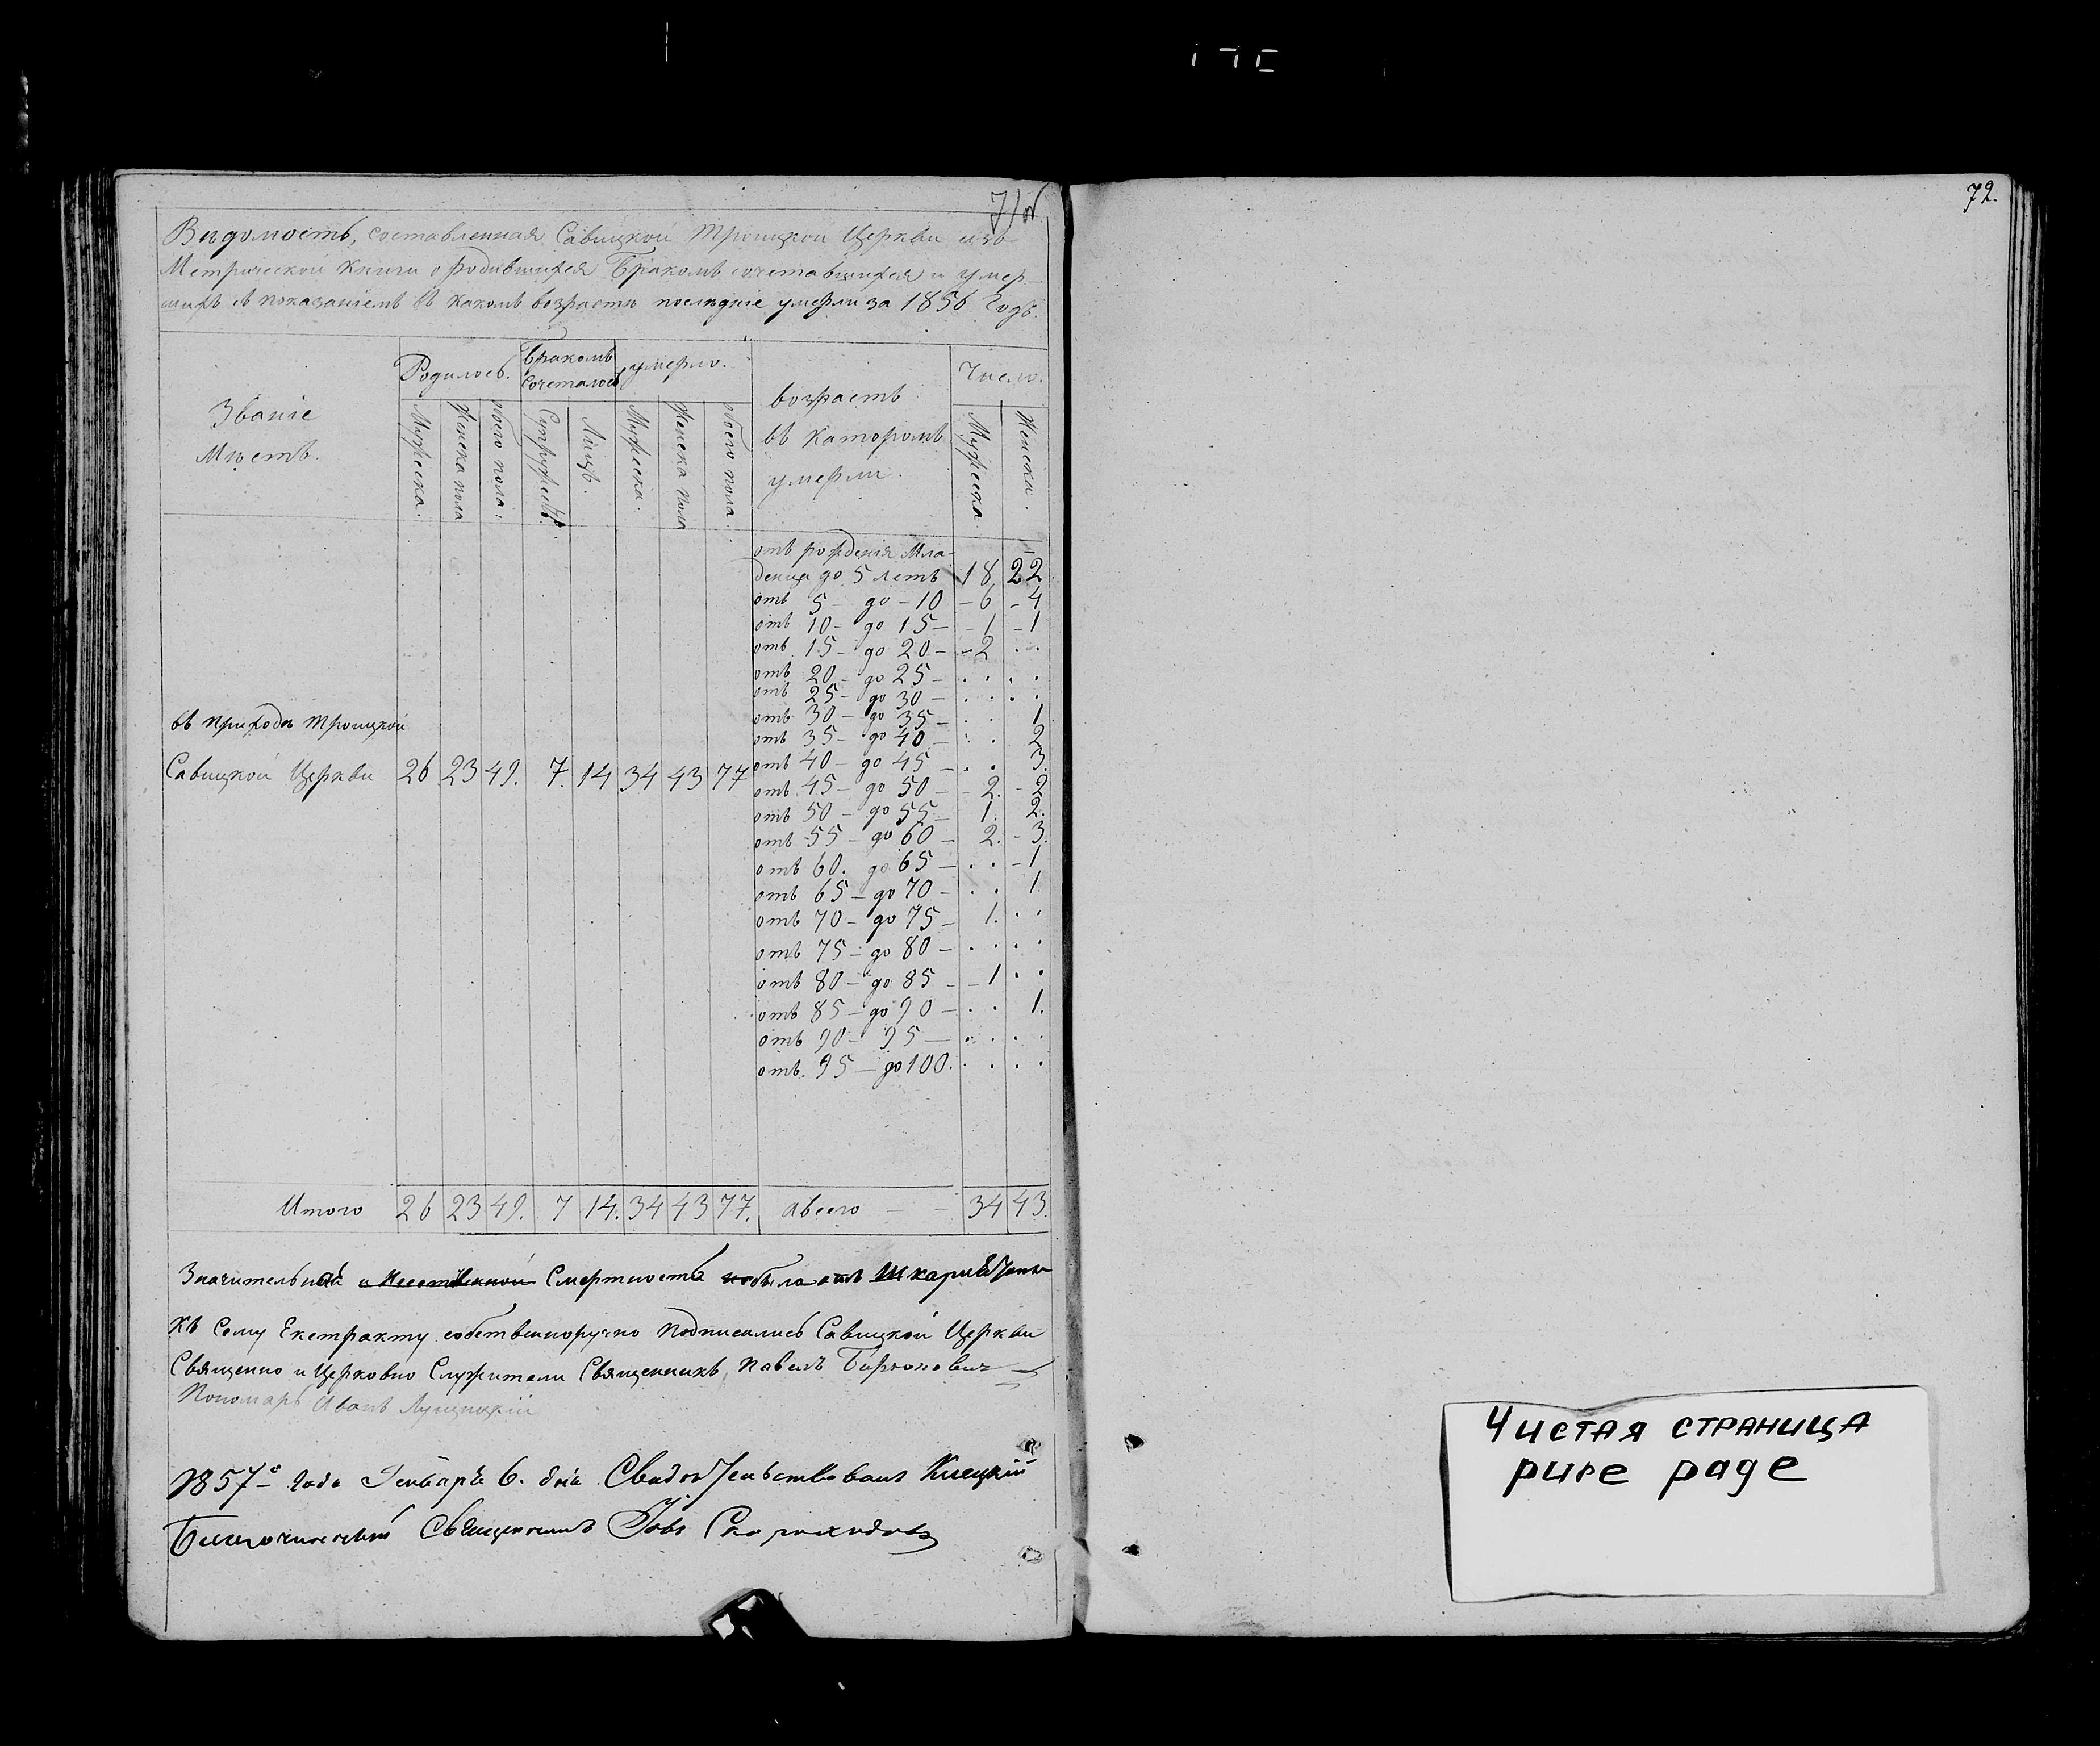 71 об
Вѣдомость, составленная Савицкой Троицкой Церкви изъ
Метрической книги о родившихся Бракомъ сочетавшихся и умер
шихъ съ показаніемъ въ какомъ возрастѣ послѣдніе умерли за 1856 Годъ.
Званіе Мѣстъ. | Родилось. | Бракомъ сочеталось | умерло. | возрастъ въ которомъ умерли. | Число.
Мужеска. | Женска пола | обоего пола. | Супружествъ. | Лицъ. | Мужеска. | Женска пола | обоего пола. | Мужеска. | Женска.
отъ рожденія Мла-
денца до 5 летъ 18 22
отъ 5 – до – 10 – 6 – 4
отъ 10 – до 15 – – 1 – 1
отъ 15 – до 20 – – 2 . .
отъ 20 – до 25 – . . . .
отъ 25 – до 30 – . . . .
отъ 30 – до 35 – . . 1
отъ 35 – до 40 – . . 2
отъ 40 – до 45 – . . 3.
отъ 45 – до 50 – – 2. – 2
отъ 50 – до 55 – 1. 2.
отъ 55 – до 60 – 2. – 3.
отъ 60. до 65 – . . – 1
отъ 65 – до 70 – . . 1.
отъ 70 – до 75 – 1. . .
отъ 75 – до 80 – . . . .
отъ 80 – до 85 – – 1 . .
отъ 85 – до 90 – . . 1.
отъ 90 – 95 — . . . .
отъ. 95 — до 100. . . . .
въ приходѣ Троицкой
Савицкой Церкви 26 23 49. 7. 14 34 43 77
Итого 26 23 49. 7 14. 34 43 77. авсего – – 34 43.
Значительная Смертность была отъ Шкарлатины
Къ Сему Екстракту собственноручно подписались Савицкой Церкви
Священно и Церковно Служители Священникъ Павелъ
Пономаръ Иванъ
1857го Года Генваря 6. дня Свидѣтельствовалъ Клецкій
Благочинный Священникъ Іовъ Скороходовъ
72.
Чистая страница
pure page